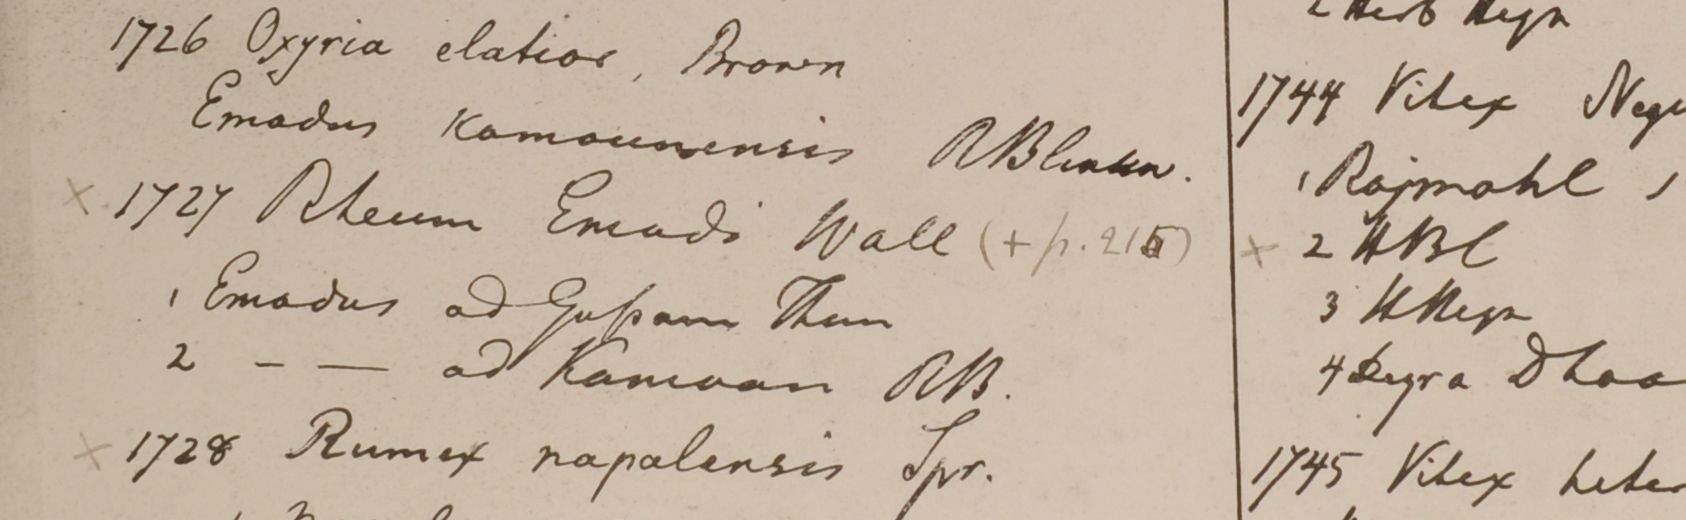 1726 Oxyria elatior, Brown
Emodus Kamounensis RBlinkw.
× 1727 Rheum Emodi Wall (+ p. 215)
1 Emodus ad Gossam Than
2 – — ad Kamoan RB.
× 1728 Rumex napalensis Spr.
2 Herb Heyn
1744 Vitex Negu
1 Rajmahl
× 2 HBC
3 HHeyn
4 Deyra Dhoo
1745 Vitex heter